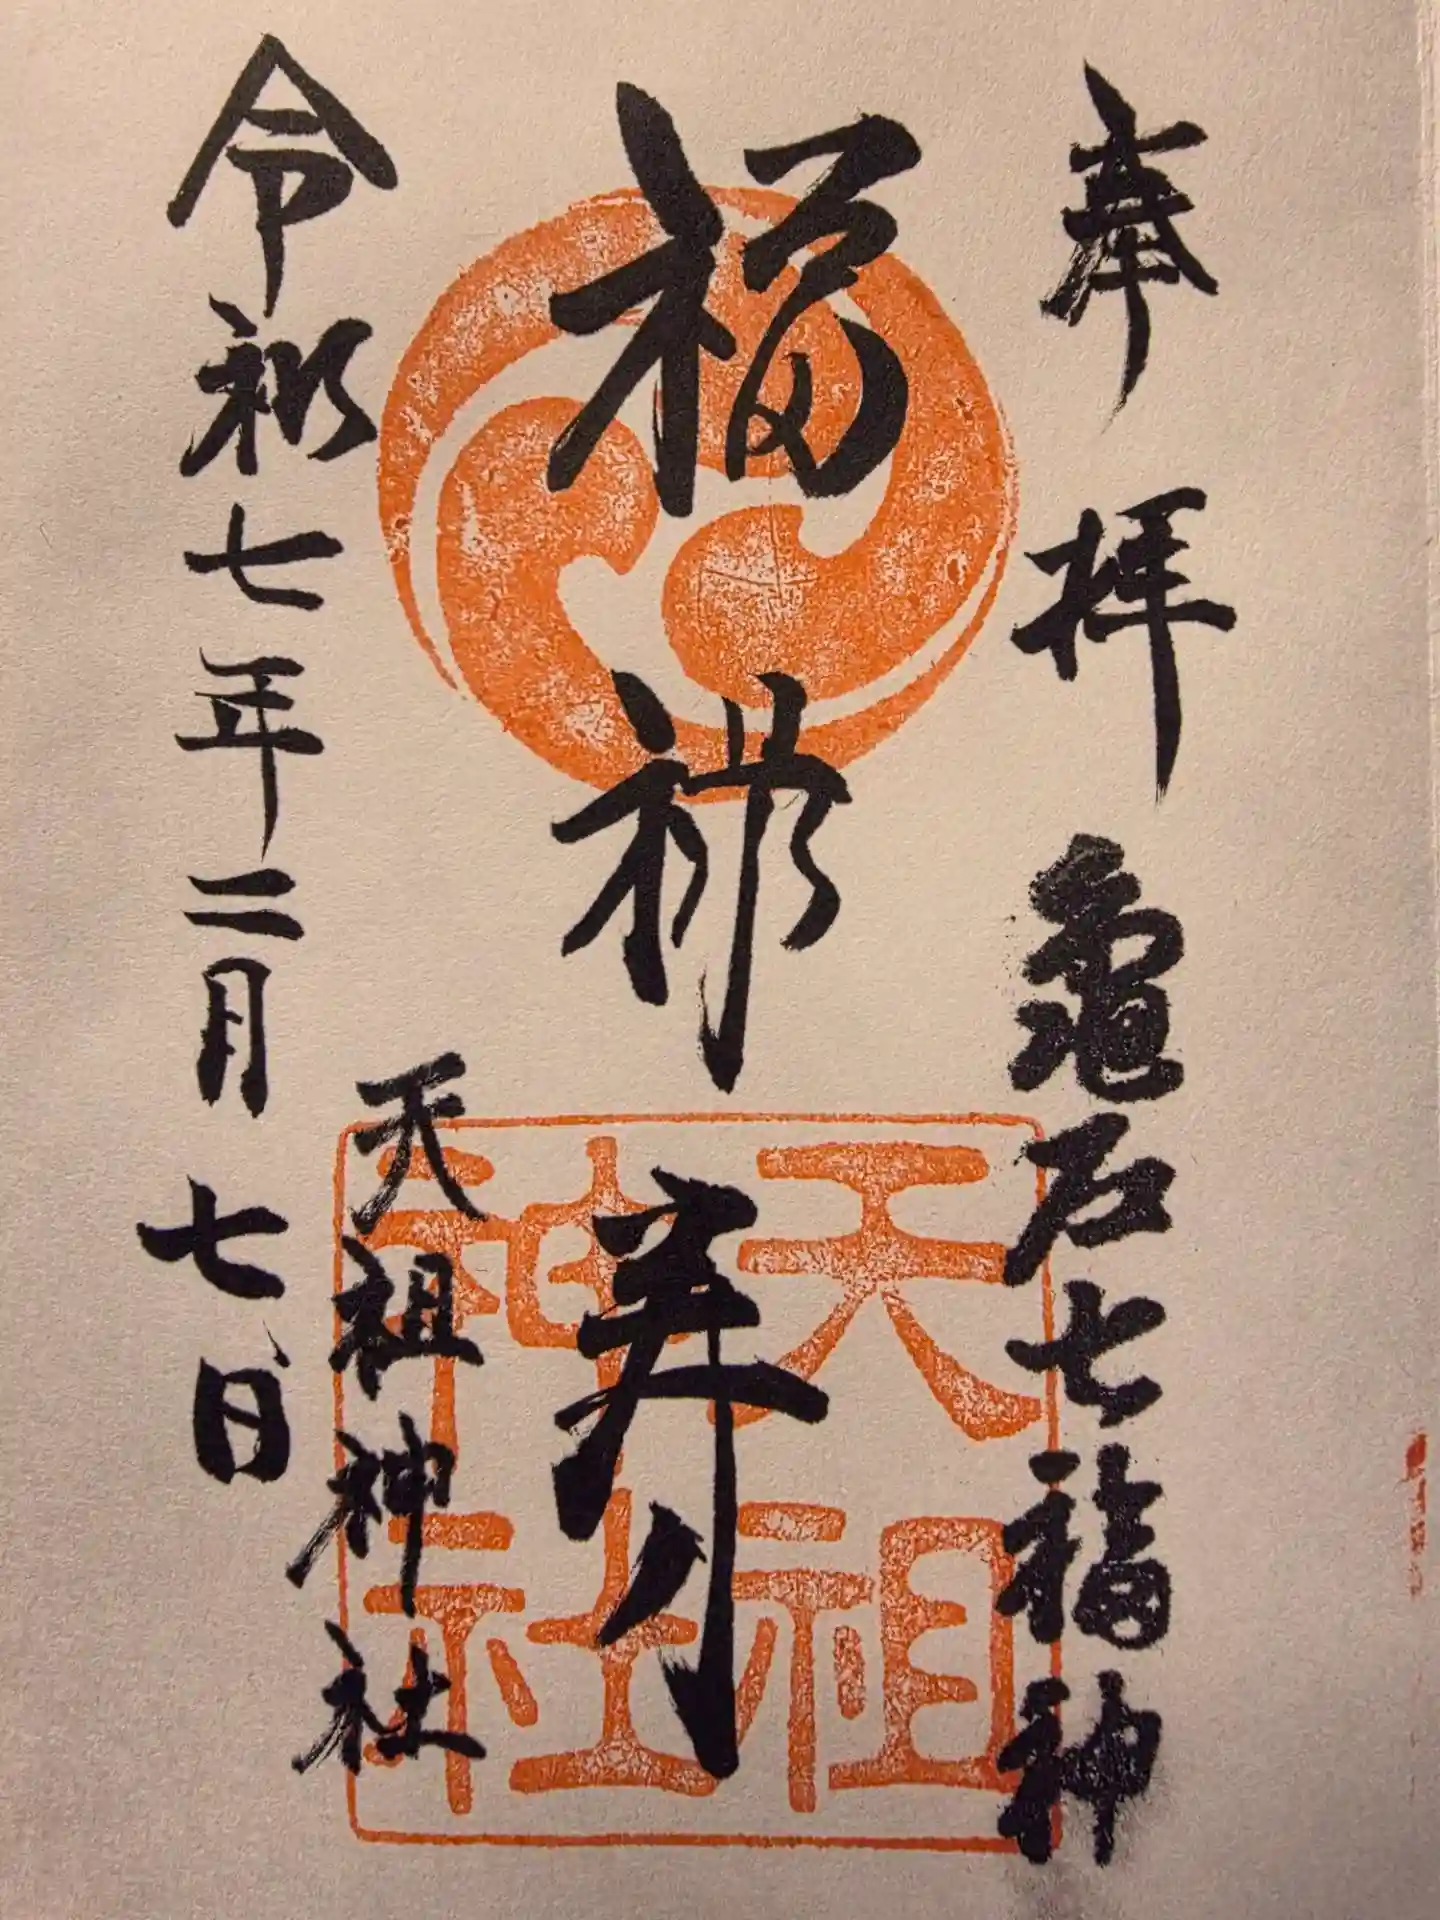 奉拝 亀戸七福神
福禄寿
天祖神社
天祖
神社
令和七年二月七日